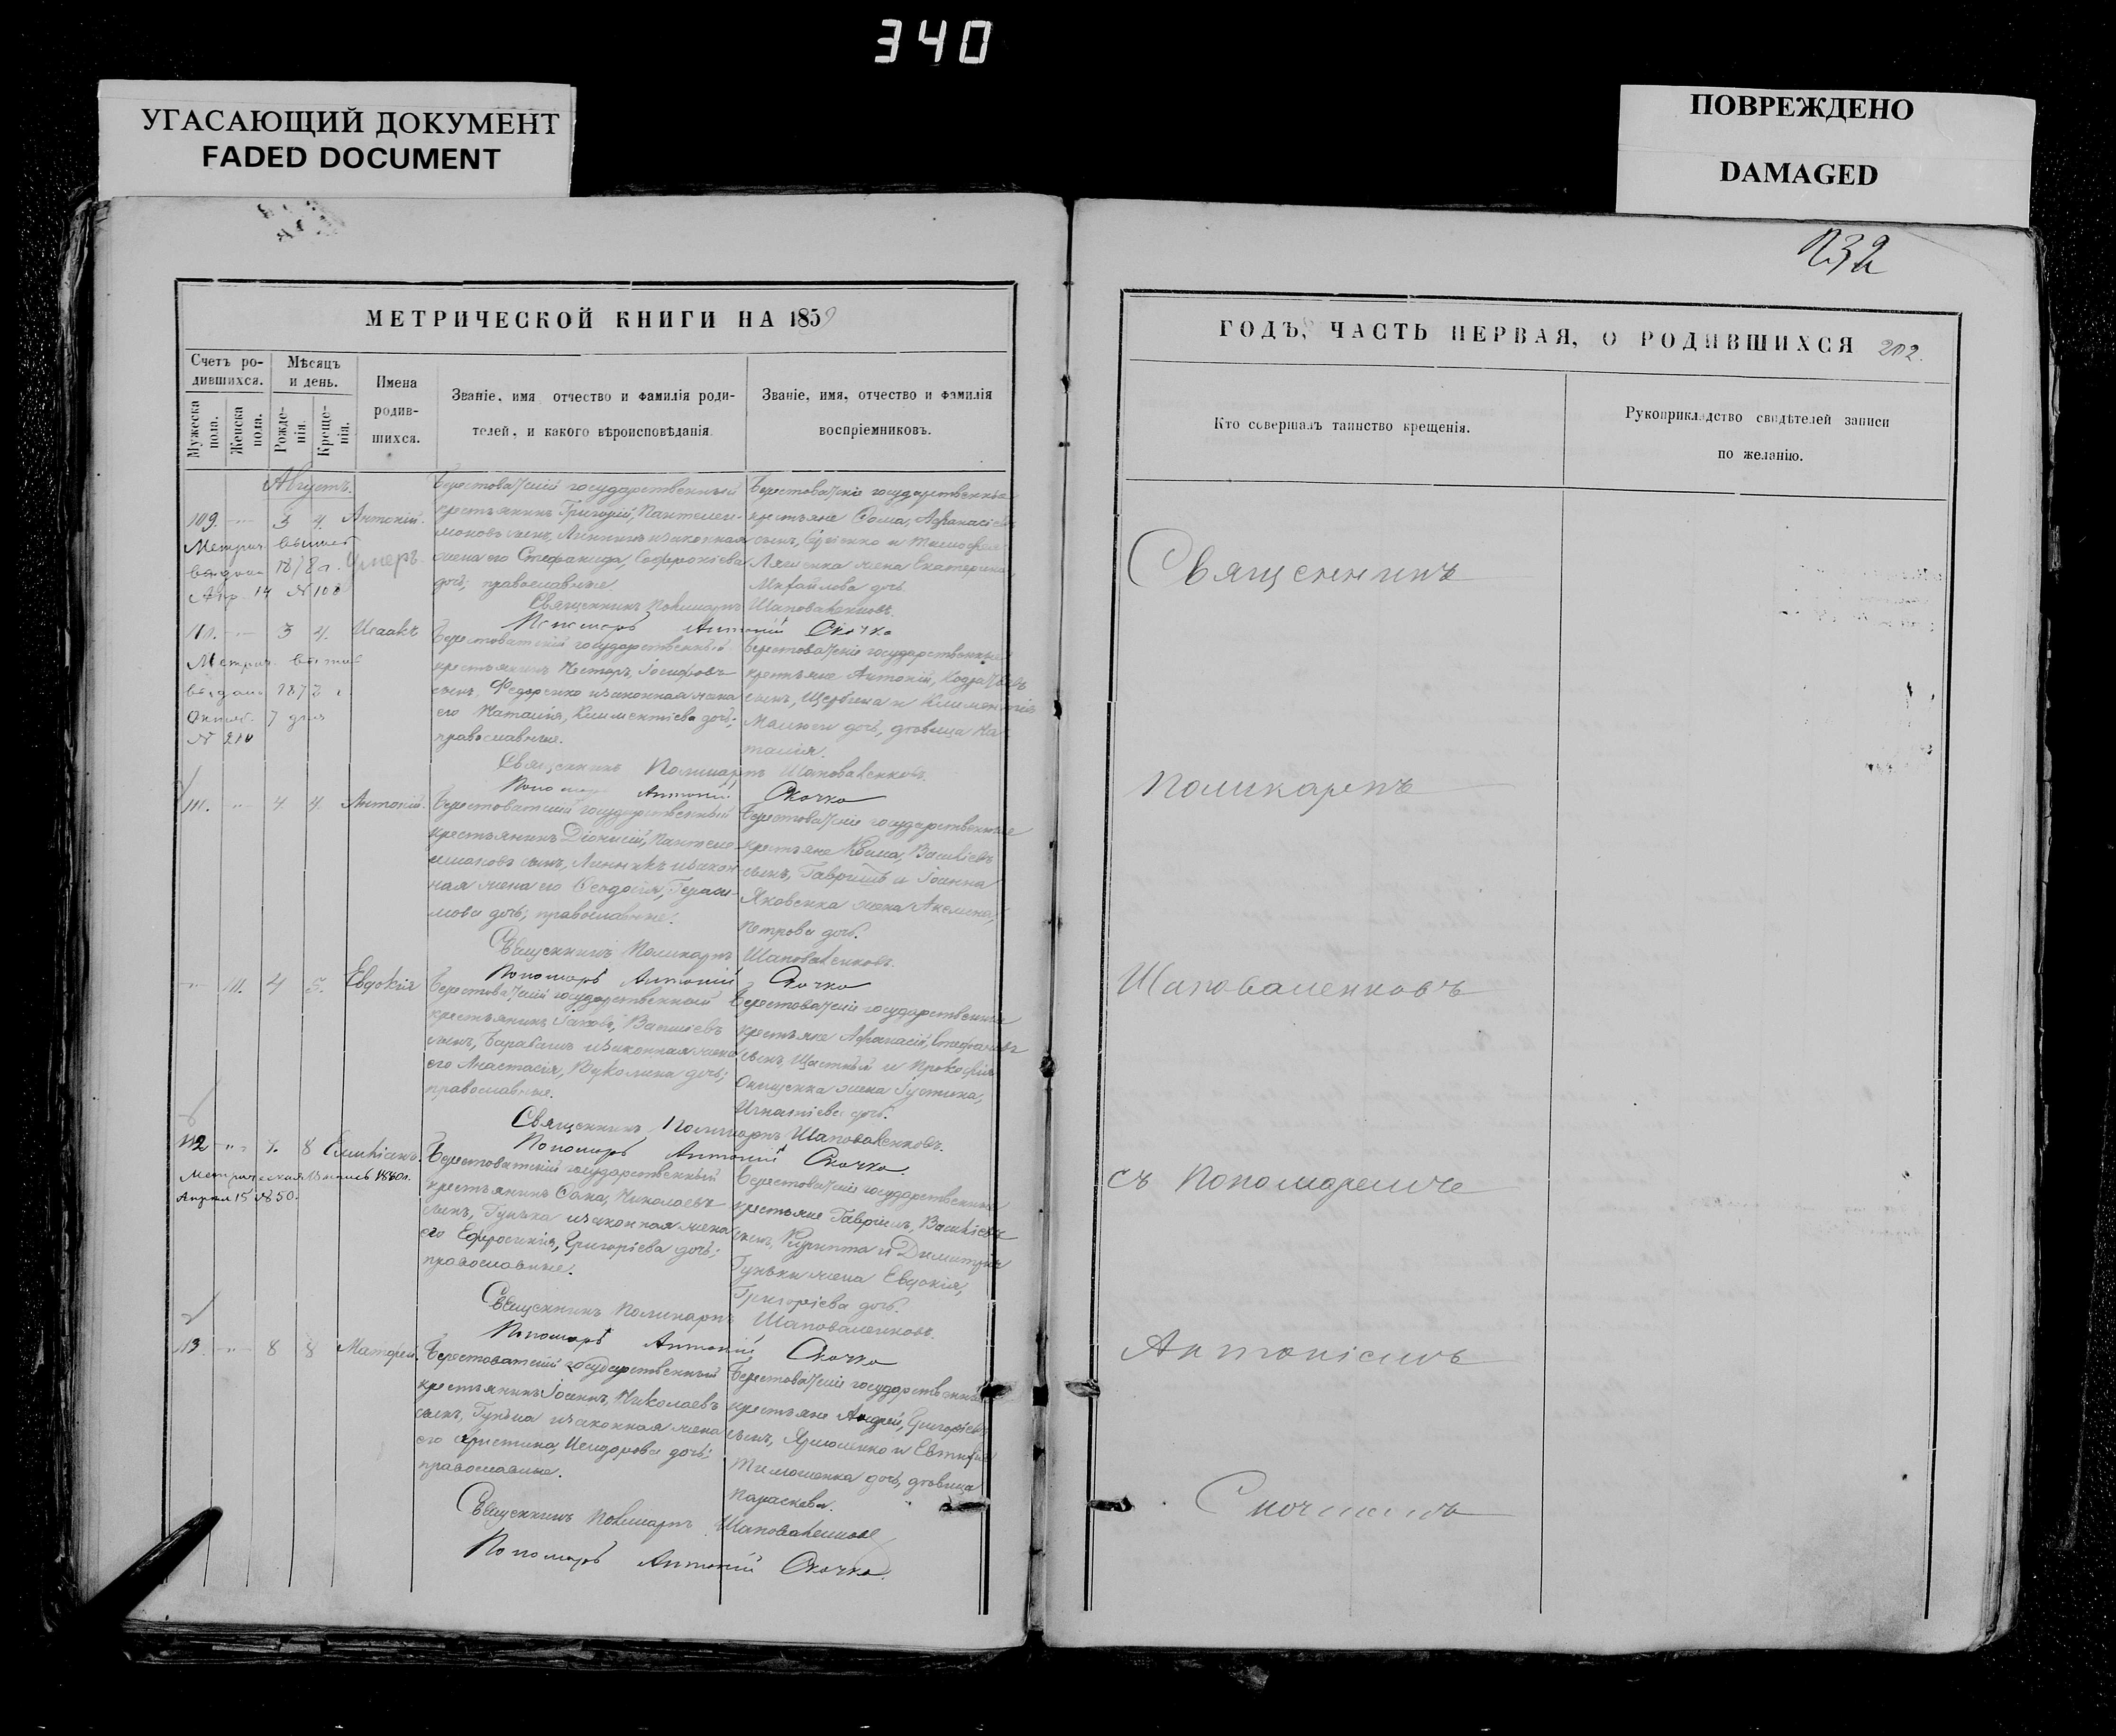 340
УГАСАЮЩИЙ ДОКУМЕНТ
FADED DOCUMENT
ПОВРЕЖДЕНО
DAMAGED
232
МЕТРИЧЕСКОЙ КНИГИ НА 1859
Счетъ ро-
дившихся.
Мужеска пола.
Женска пола.
Мѣсяцъ
и день.
Рожде-
нія.
Креще-
нія.
Имена
родив-
шихся.
Званіе, имя отчество и фамилія роди-
телей, и какого вѣроисповѣданія.
Званіе, имя, отчество и фамилія
воспріемниковъ.
Августъ.
109. 3 4. Антоній.
Умеръ.
Апр. 14 №108
Берестоватскій государственный
крестьянинъ Григорій, Пантелеи-
моновъ сынъ, Линникъ и законная
жена его Стефанида, Софроніева
дочь, православные
Берестоватскіе государственные
крестьяне Ѳома, Афанасіевъ
сынъ, и
жена Екатерина
Михайлова дочь.
Священникъ Поликарпъ Шаповаленковъ.
Пономарь Антоній Скочко
110. 3 4. Исаакъ
Октяб. 7 дня
№ 210
Берестоватскій государственный
крестьянинъ Несторъ, Іосифовъ
сынъ, Федоренко и законная жена
его Наталія, Климентіева дочь;
православные.
Берестоватскіе государственные
крестьяне Антоній, Кодратовъ
сынъ, Щербина и Климентія
дочь, дѣвица На-
талія.
Священникъ Поликарпъ Шаповаленковъ.
Пономарь Антоній Скочко
111. 4 4. Антоній.
Берестоватскій государственный
крестьянинъ Діонисій, Пантеле-
имоновъ сынъ, Линникъ и закон-
ная жена его Ѳеодосія, Гераси-
мова дочь, православные.
Берестоватскіе государственные
крестьяне Василіевъ
сынъ, Гавришъ и Іоанна
Яковенка жена Акелина,
Петрова дочь.
Священникъ Поликарпъ Шаповаленковъ.
Пономарь Антоній Скочко
111. 4 5. Евдокія
Берестоватскій государственный
крестьянинъ Іаковъ, Василіевъ
сынъ, Барабашъ и законная жена
его Анастасія, Вуколина дочь;
православные.
Берестоватскіе государственные
крестьяне Афанасій, Стефановъ
сынъ, Щастный и Прокофія
Онищенка жена Іустина,
Игнатіева дочь.
Священникъ Поликарпъ Шаповаленковъ.
Пономарь Антоній Скочко.
112 7. 8 Емиліанъ.
Метрическая выпись 1880г.
Апрел 15 №50.
Берестоватскій государственный
крестьянинъ Николаевъ
сынъ, Гунька и законная жена
его Ефросинія, Григоріева дочь;
православные.
Берестоватскіе государственные
крестьяне Гавріилъ, Василіевъ
сынъ, и Димитрія
Гуньки жена Евдокія,
Григоріева дочь.
Священникъ Поликарпъ Шаповаленковъ.
Пономарь Антоній Скочко
113. 8 8 Матфей.
Берестоватскій государственный
крестьянинъ Іоаннъ, Николаевъ
сынъ, Гунька и законная жена
его Христина, Исидорова дочь;
православные.
Берестоватскіе государственные
крестьяне Андрей, Григоріевъ
сынъ, Ярошенко и Евтихія
Тимошенка дочь, дѣвица
Параскева.
Священникъ Поликарпъ Шаповаленковъ
Пономарь Антоній Скочко.
ГОДЪ, ЧАСТЬ ПЕРВАЯ, О РОДИВШИХСЯ 202.
Кто совершалъ таинство крещенія.
Рукоприкладство свидѣтелей записи
по желанію.
Священникъ
Поликарпъ
Шаповаленковъ
съ Пономаремъ
Антоніемъ
Скочкомъ